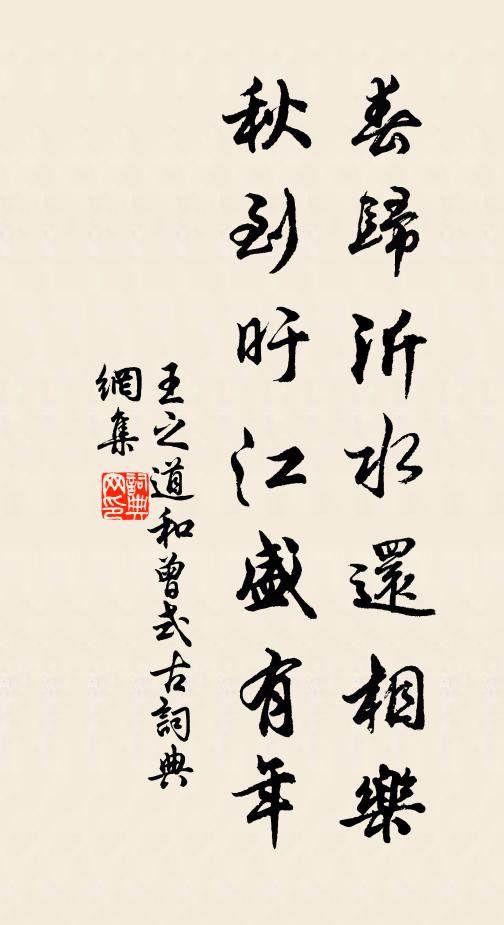 春歸沂水還相樂
秋到盱江盛有年
王之道和曾式古詞典
網集
詞典
网印